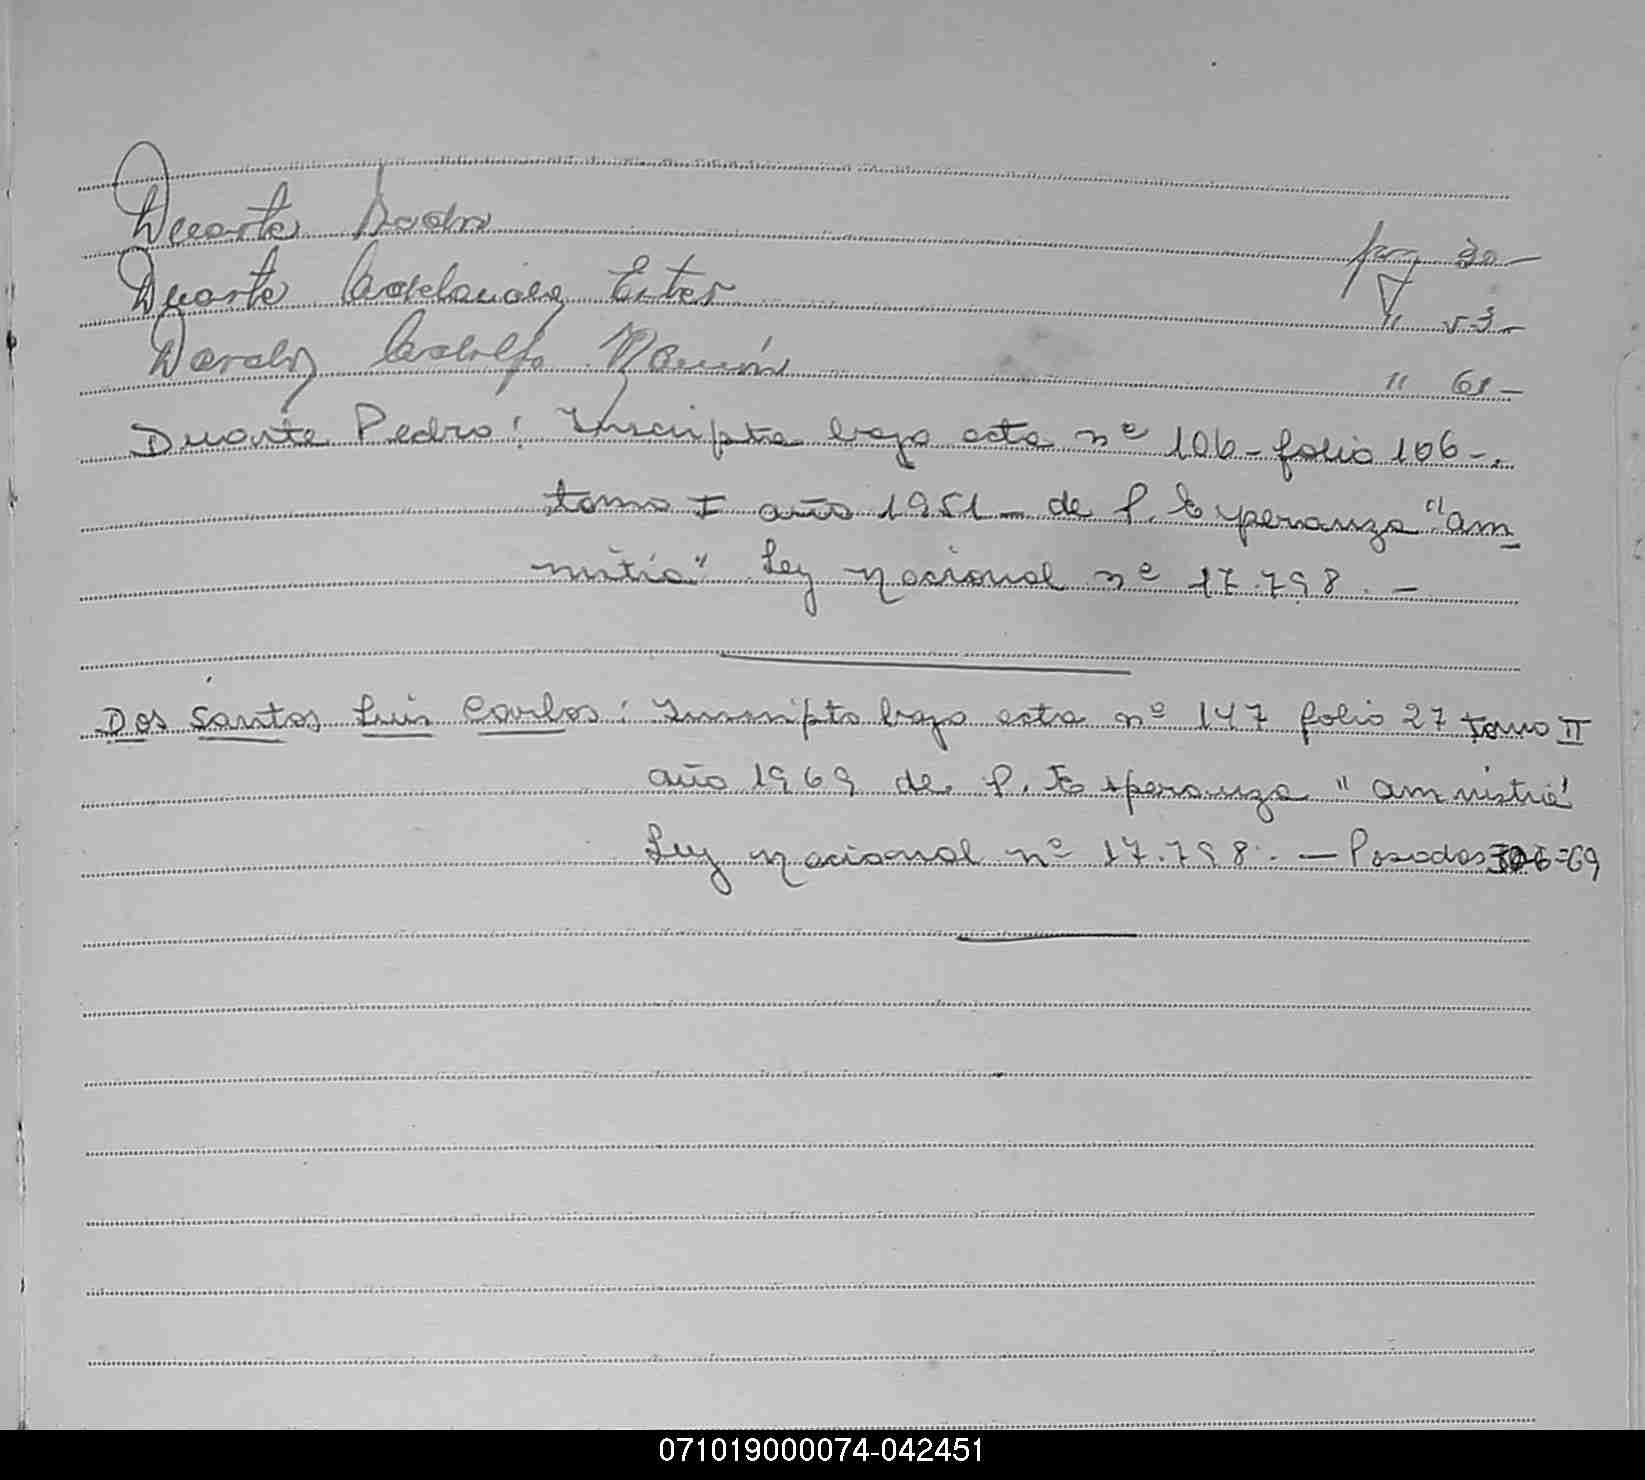 Duarte pag 30-
Duarte Adelaida Ester " 53-
Adolfo Ramón " 61-
Duarte Pedro: Inscripta bajo acta nº 106-folio 106-.
tomo I año 1951- de P. Esperanza "am-
nistia" Ley nacional nº 17.798.-
Dos Santos Luis Carlos: Inscripto bajo acta nº 147 folio 27 tomo II
año 1969 de P. Esperanza "amnistia"
Ley nacional nº 17.798.- Posadas
071019000074-042451